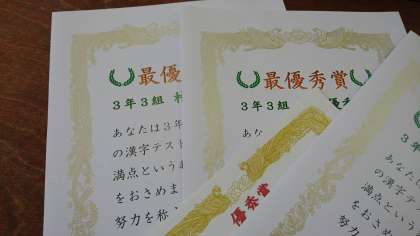 最優
3年3組
あなたは3年
の漢字テスト
満点という
をおさめま
努力を称、
最優秀賞
3年3組
あな
優秀賞
あ
の漢
満点
をお
努力